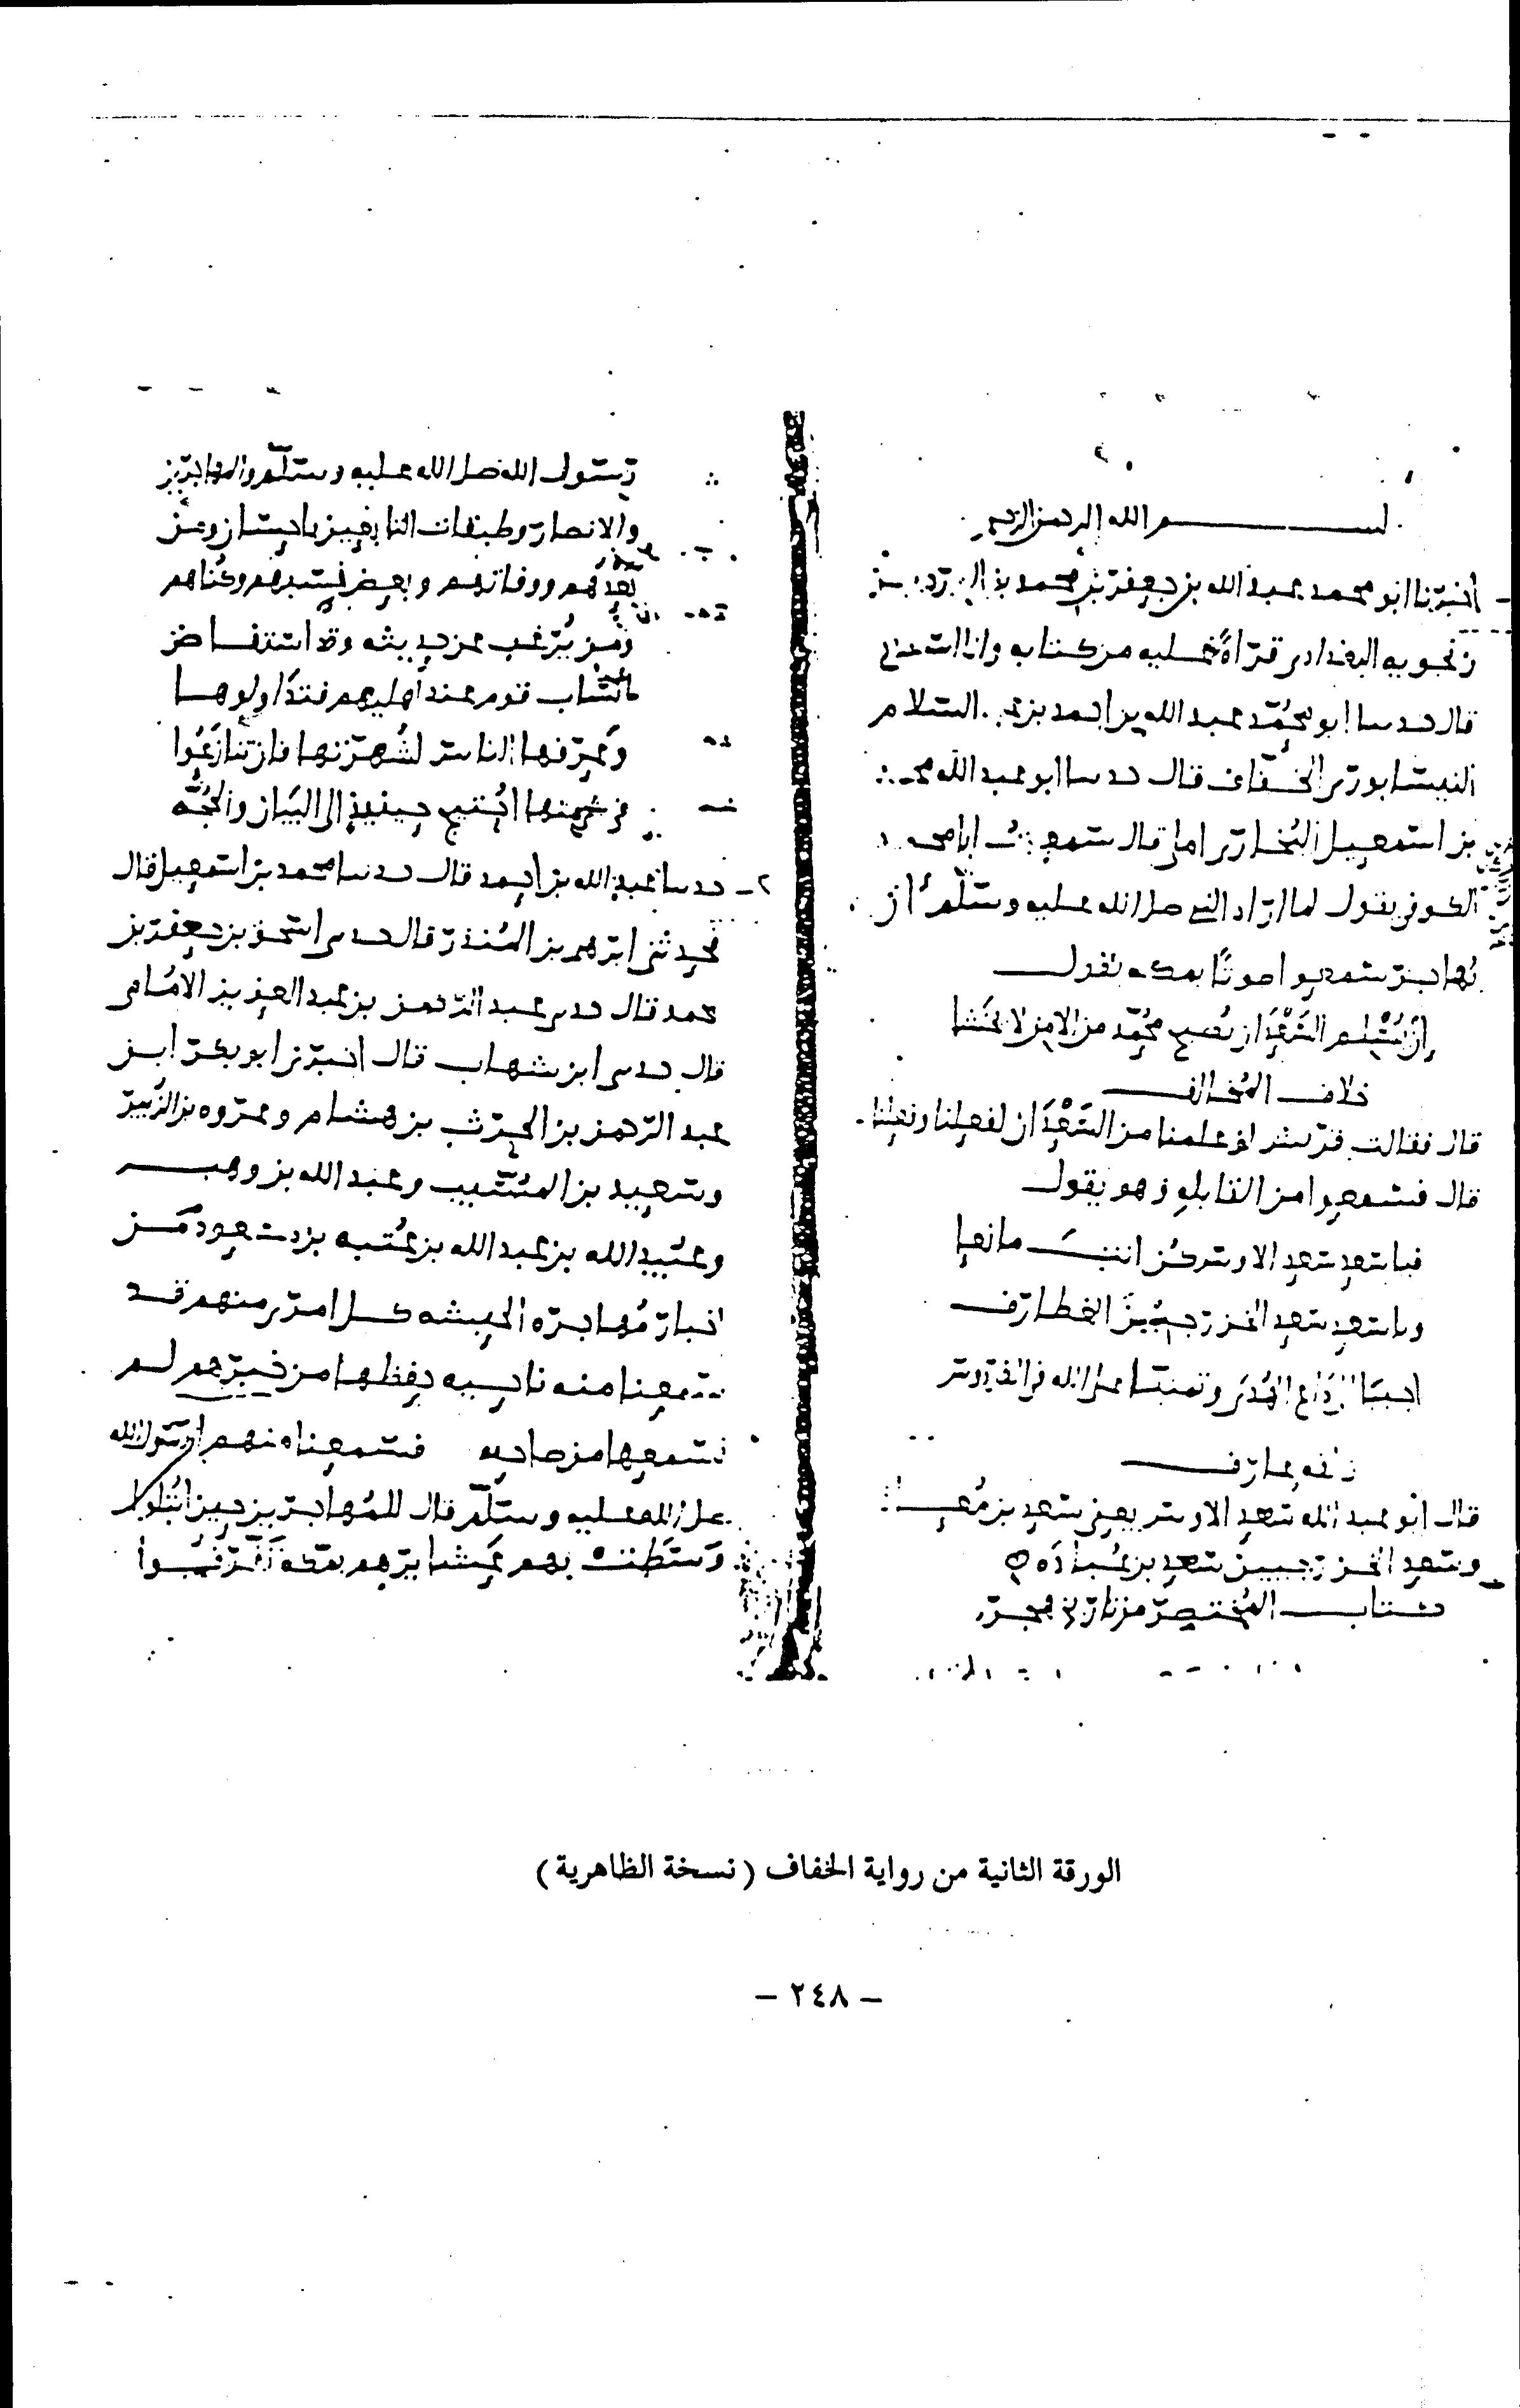 بسم الله الرحمن الرحيم
اخبرنا ابو محمد عبد الله بن جعفر بن محمد بن الورد بن
زنجويه البغدادي قراة عليه من كتابه وانا اسمع
قال حدسا ابو محمد عبد الله بن احمد بن عبد السلام
النيسابوري الخفاف قال حدسا ابو عبد الله محمد
بن اسمعيل البخاري املى قال سمعت ابا محمد
الكوفي يقول لما اراد النبي صلى الله عليه وسلم ان
يهاجر سمعوا صوتا بمكه يقول
إن يسلم السعدان يصبح محمد من الامر لا يخشا
خلاف المخالف
قال فقالت قريش لو علمنا من السعدان لفعلنا وفعلنا
قال فسمعوا من القابله وهو يقول
فيا سعد سعد الاوس كن انت مانعا
ويا سعد سعد الخزرجيين الغطارف
اجيبا الى داع الهدى وتمنيا على الله في الفردوس
زلفه عارف
قال ابو عبد الله سعد الاوس يعني سعد بن معاذ
وسعد الخزرجيين سعد بن عباده
كتاب المختصر من تاريخ هجرة
رسول الله صلى الله عليه وسلم والمهاجرين
والانصار وطبقات التابعين باحسان ومن
بعدهم ووفاتهم وبعض نسبهم وكناهم
ومن يرغب عن حديثه وقد استفاض
انساب قوم عند اهليهم فتداولوها
وعرفها الناس لشهرتها فان تنازعوا
في شهرتها احتيج حينيذ الى البيان والحجه
٢ - حدسا عبد الله بن احمد قال حدسا محمد بن اسمعيل قال
فحدثني ابرهيم بن المنذر قال حدسى اسحق بن جعفر بن
محمد قال حدسى عبد الرحمن بن عبد العزيز الامامي
قال حدسى ابن شهاب قال اخبرني ابو بكر ابن
عبد الرحمن بن الحرث بن هشام وعروه بن الزبير
وسعيد بن المسيب وعبد الله بن وهب
وعبيد الله بن عبد الله بن عتبه بن مسعود من
اخبار مهاجره الحبشه كل امرى منهم قد
سمعنا منه ناحيه حفظها من خبرهم لم
نسمعها من صاحبه فسمعنا منهم ان رسول الله
صلى الله عليه وسلم قال للمهاجرين حين ابتلوا
وسطت بهم عشايرهم بمكه تفرقوا
الورقة الثانية من رواية الخفاف (نسخة الظاهرية)
- ٢٤٨ -